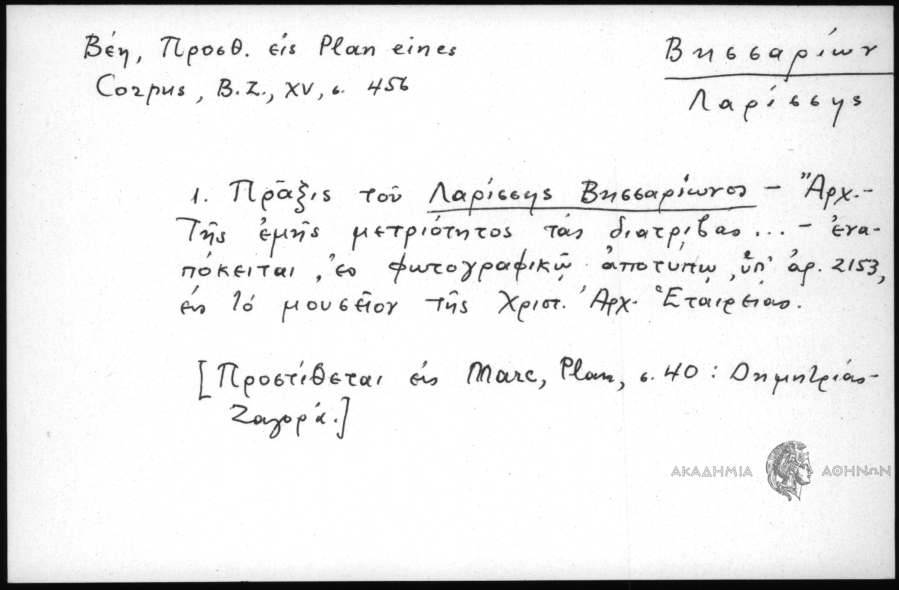 Βέη, Προσθ. εἰς Plan eines
Corpus, B.Z., XV, σ. 456
Βησσαρίων
Λαρίσσης
1. Πρᾶξις τοῦ Λαρίσσης Βησσαρίωνος – "Ἀρχ.-
Τῆς ἐμῆς μετριότητος τὰς διατρίβας ... – ἐνα-
πόκειται, ἐν φωτογραφικῷ ἀποτυπω, ὑπ' ἀρ. 2153,
εἰς τὸ μουσεῖον τῆς Χριστ. Ἀρχ. Ἑταιρείας.
[Προστίθεται εἰς Marc, Plan, σ. 40 : Δημητριάς-
Ζαγορά.]
ΑΚΑΔΗΜΙΑ ΑΘΗΝΩΝ